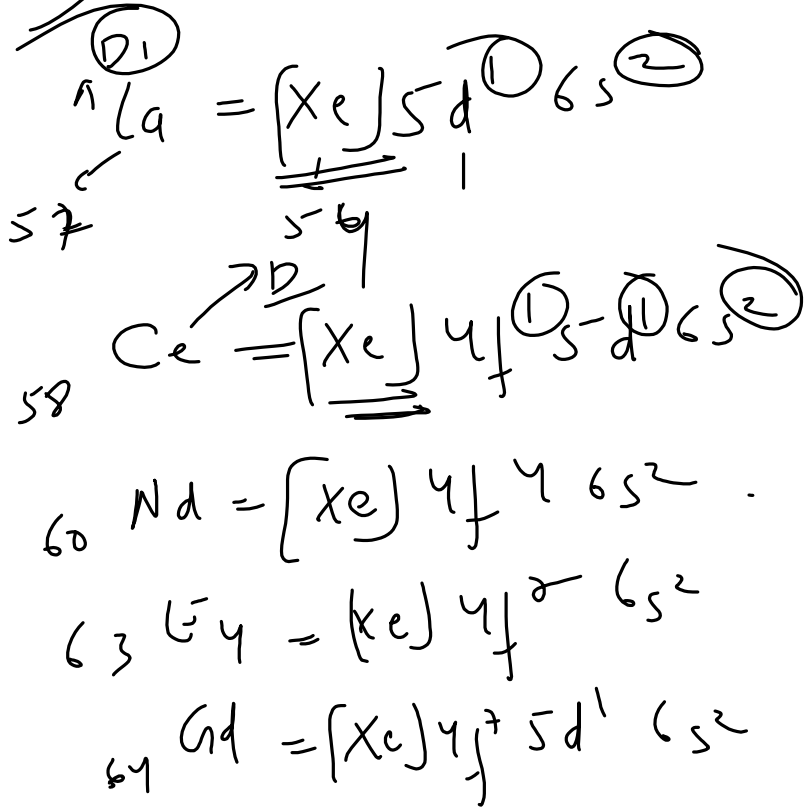 D1
La = [Xe] 5d¹ 6s²
57 54
D
58 Ce = [Xe] 4f¹ 5d¹ 6s²
60 Nd = [Xe] 4f⁴ 6s² .
63 Eu = [Xe] 4f⁷ 6s²
64 Gd = [Xe] 4f⁷ 5d¹ 6s²